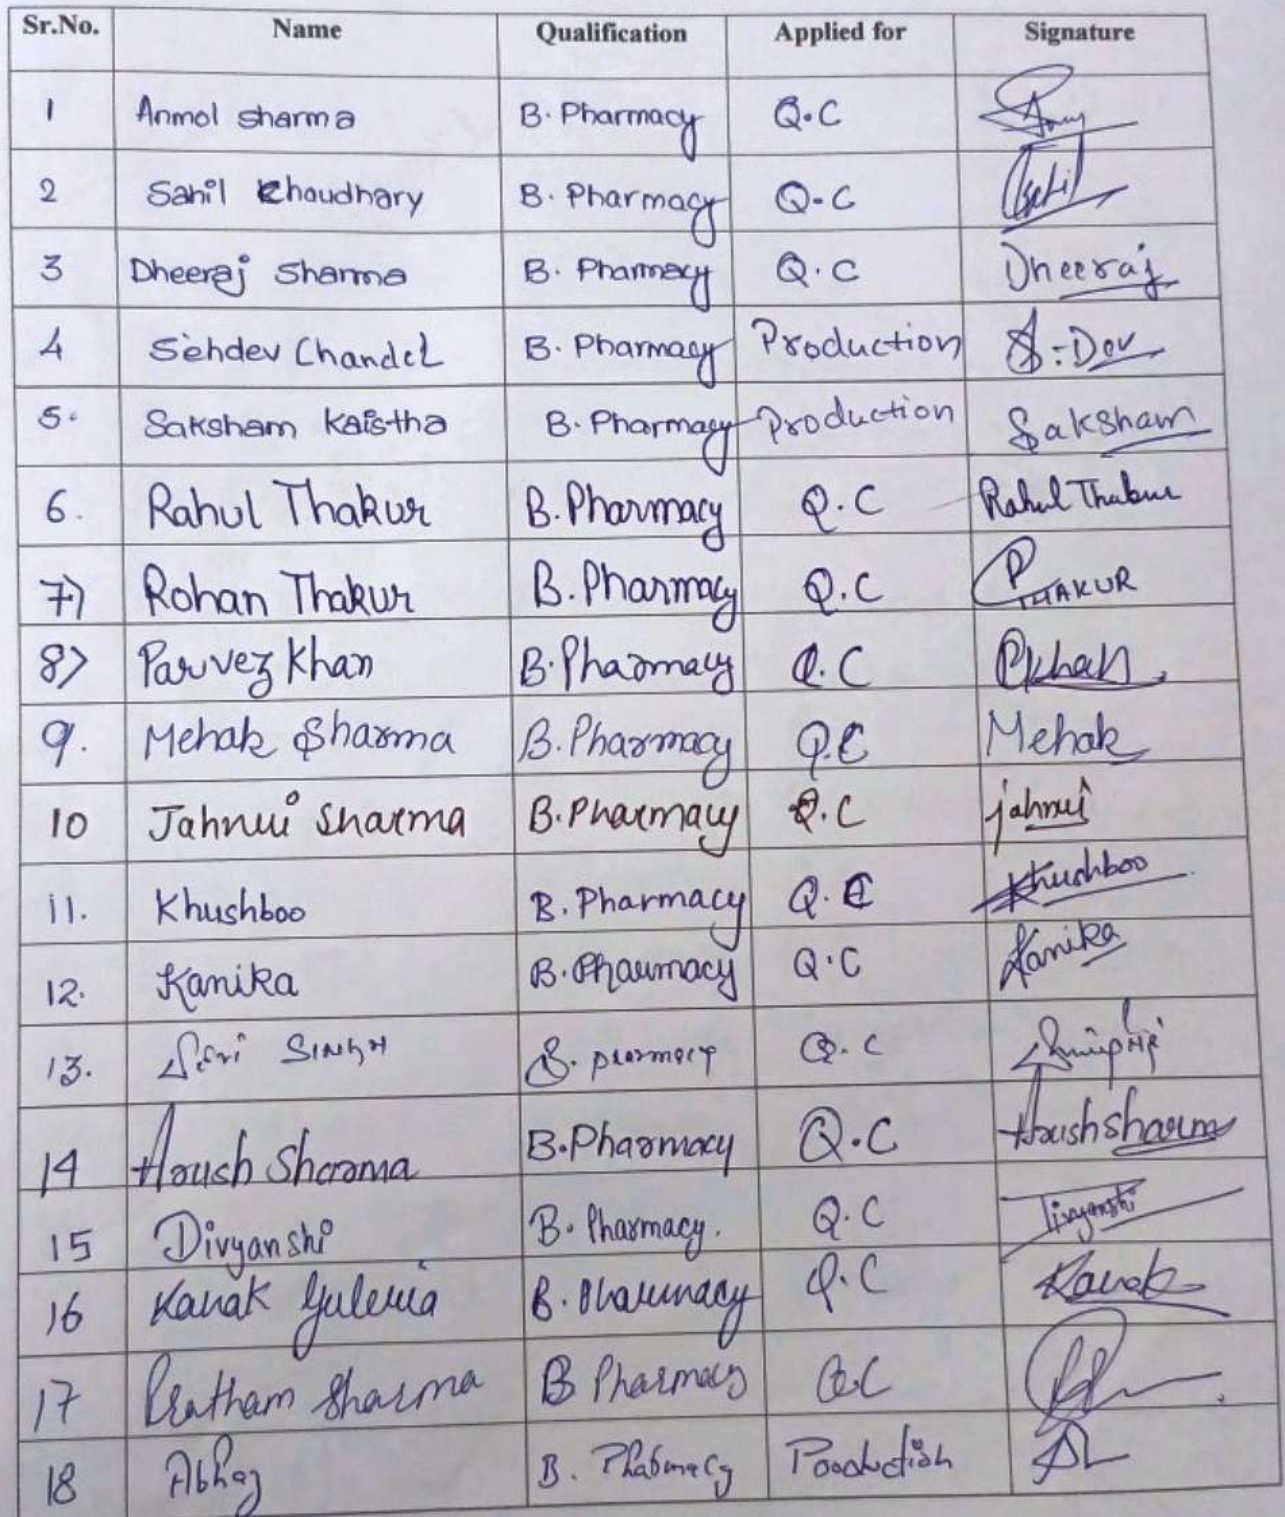 Sr.No. Name Qualification Applied for Signature
1 Anmol sharma B. Pharmacy Q.C
2 Sahil Choudhary B. Pharmacy Q-C Sahil
3 Dheeraj Sharma B. Pharmacy Q.C Dheeraj
4 Sehdev Chandel B. Pharmacy Production S.Dev
5. Saksham Kaistha B. Pharmacy Production Saksham
6. Rahul Thakur B. Pharmacy Q.C Rahul Thakur
7) Rohan Thakur B. Pharmacy Q.C THAKUR
8) Parvez Khan B. Pharmacy Q.C PKhan
9. Mehak Sharma B. Pharmacy Q.C Mehak
10 Jahnvi Sharma B. Pharmacy Q.C jahnvi
11. Khushboo B. Pharmacy Q.C Khushboo
12. Kanika B. Pharmacy Q.C Kanika
13. SINGH B. pharmacy Q.C
14 Sharma B. Pharmacy Q.C sharma
15 Divyanshi B. Pharmacy. Q.C Divyanshi
16 Kanak Guleria B. Pharmacy Q.C Kanak
17 Pratham Sharma B Pharmacy Q.C
18 B. Pharmacy Production